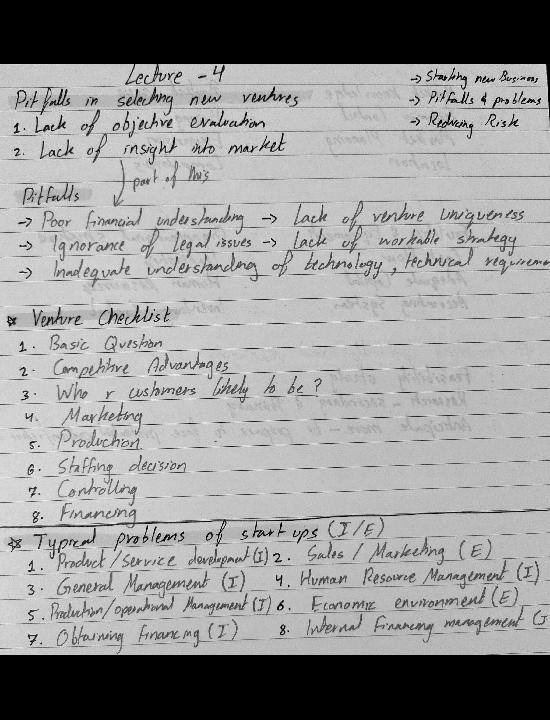 Lecture - 4
→ Starting new Business
→ Pitfalls & problems
→ Reducing Risk
Pitfalls in selecting new ventures
1. Lack of objective evaluation
2. Lack of insight into market
part of this
Pitfalls
→ Poor financial understanding → Lack of venture uniqueness
→ Ignorance of legal issues → Lack of workable strategy
→ Inadequate understanding of technology, technical requirem
* Venture Checklist
1. Basic Question
2. Competitive Advantages
3. Who r customers likely to be?
4. Marketing
5. Production
6. Staffing decision
7. Controlling
8. Financing
* Typical problems of start ups (I/E)
1. Product/Service development (I) 2. Sales / Marketing (E)
3. General Management (I) 4. Human Resource Management (I)
5. Production/operational Management (I) 6. Economic environment (E)
7. Obtaining Financing (I) 8. Internal Financing management (I